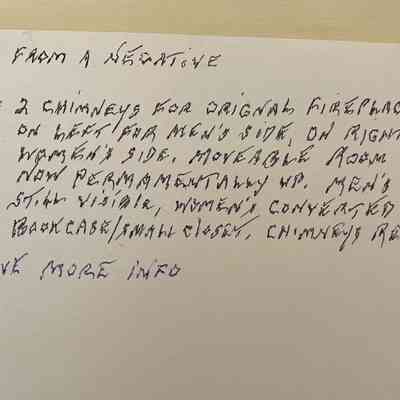 FROM A NEGATIVE
2 CHIMNEYS FOR ORIGNAL FIREPLAC
ON LEFT FOR MEN'S SIDE, ON RIGHT
WOMEN'S SIDE. MOVEABLE ROOM
NOW PERMAMENTALLY UP. MEN'S
STILL VISIBLE, WOMEN'S CONVERTED
BOOKCASE/SMALL CLOSET. CHIMNEYS RE
VE MORE INFO